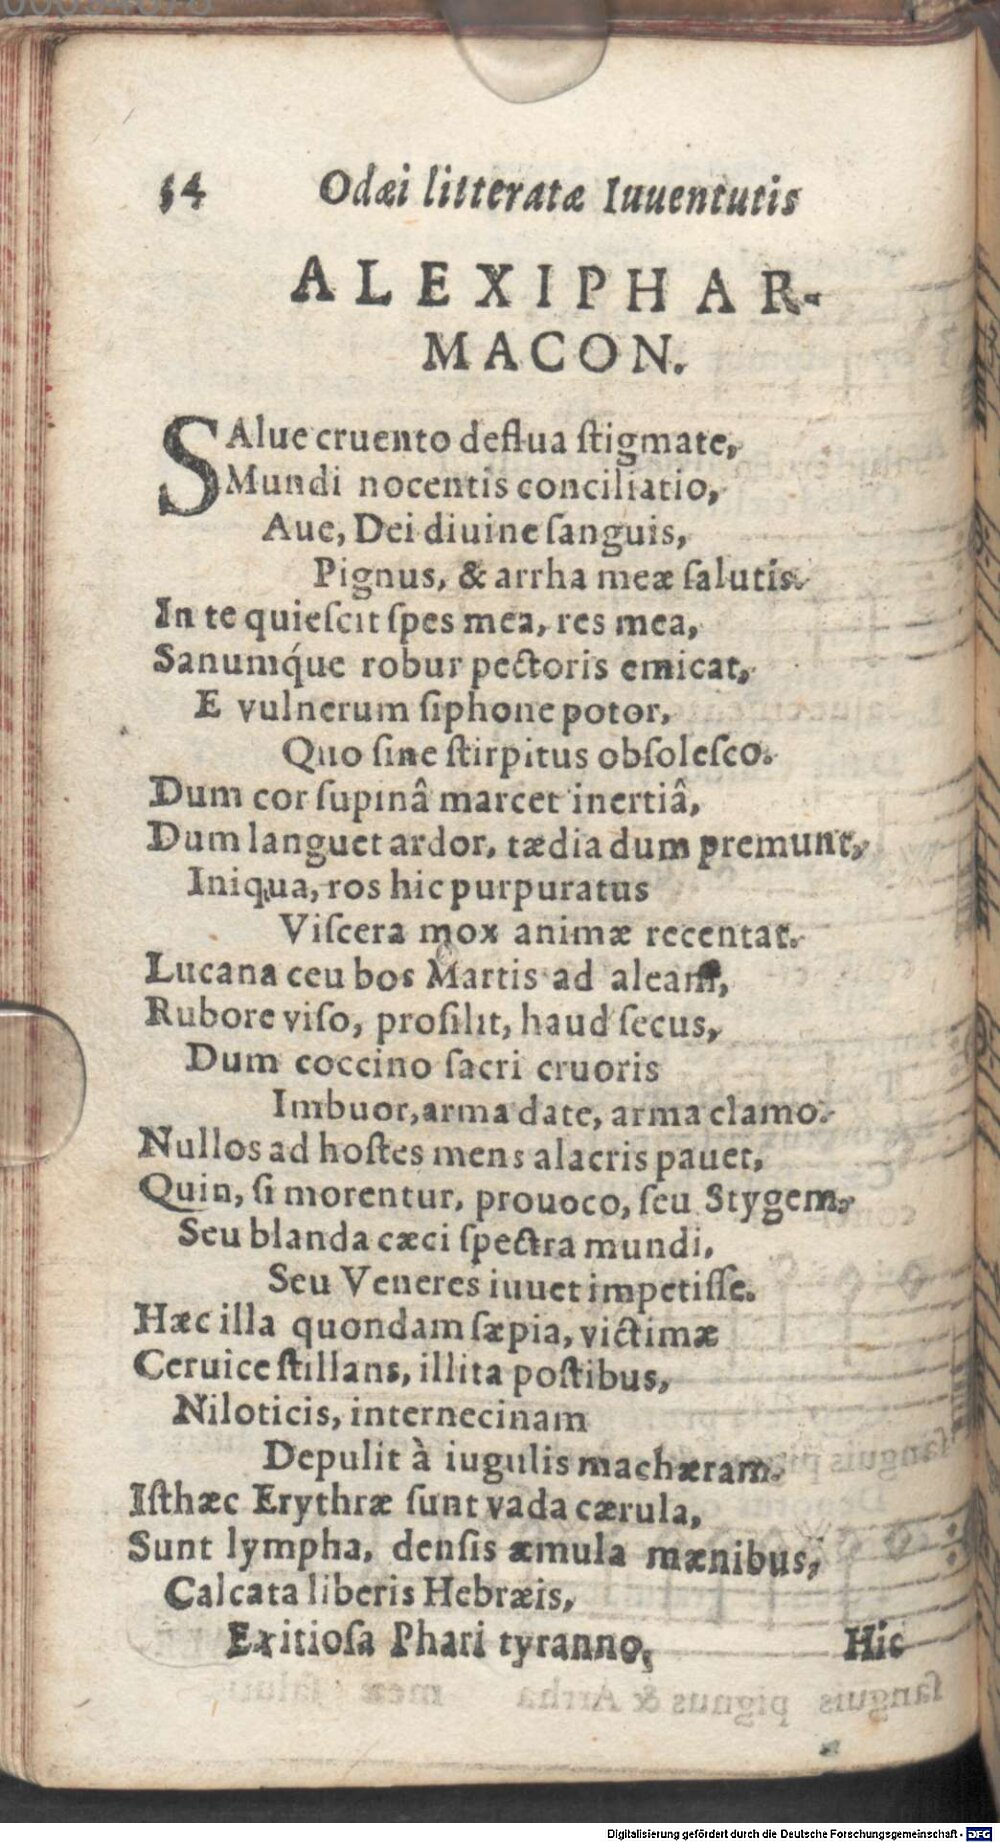 54 Odæi litteratæ Iuuentutis
ALEXIPHAR-
MACON.
SAlue cruento deflua ſtigmate,
Mundi nocentis conciliatio,
Aue, Dei diuine ſanguis,
Pignus, & arrha meæ ſalutis.
In te quieſcit ſpes mea, res mea,
Sanumq́ue robur pectoris emicat,
E vulnerum ſiphone potor,
Quo ſine ſtirpitus obſoleſco.
Dum cor ſupinâ marcet inertiâ,
Dum languet ardor, tædia dum premunt,
Iniqua, ros hic purpuratus
Viſcera mox animæ recentat.
Lucana ceu bos Martis ad aleam,
Rubore viſo, proſilit, haud ſecus,
Dum coccino ſacri cruoris
Imbuor, arma date, arma clamo.
Nullos ad hoſtes mens alacris pauet,
Quin, ſi morentur, prouoco, ſeu Stygem,
Seu blanda cæci ſpectra mundi,
Seu Veneres iuuet impetiſſe.
Hæc illa quondam ſæpia, victimæ
Ceruice ſtillans, illita poſtibus,
Niloticis, internecinam
Depulit à iugulis machæram.
Iſthæc Erythræ ſunt vada cærula,
Sunt lympha, denſis æmula mænibus,
Calcata liberis Hebræis,
Exitioſa Phari tyranno,
Hic
Digitalisierung gefördert durch die Deutsche Forschungsgemeinschaft - DFG